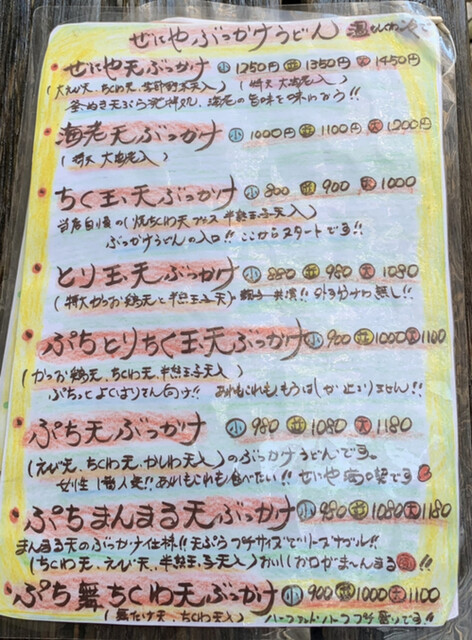 せにやぶっかけうどん 温
せにや天ぶっかけ 小1250円 並1350円 大1450円
(大えび天、ちくわ天、 (特大大海老入)
釜ぬき天ぷら 海老の旨味を味わおう!!
海老天ぶっかけ 小1000円 並1100円 大1200円
(特大大海老入)
ちく玉天ぶっかけ 小800 並900 大1000
当店自慢の(焼ちくわ天プラス半熟玉子天入)
ぶっかけうどんの入口!!ここからスタートです!!
とり玉天ぶっかけ 小880 並980 大1080
(特大かつお鶏天と半熟玉子天)
ぷちとりちく玉天ぶっかけ 小900 並1000 大1100
(かつお鶏天、ちくわ天、半熟玉子天入)
ぷちっとよくばりさん向け!! あれもこれも、もうはしが止まりません!!
ぷち天ぶっかけ 小980 並1080 大1180
(えび天、ちくわ天、かしわ天入)のぶっかけうどんです。
女性1番人気!!あれもこれも食べたい!!せにや
ぷちまんまる天ぶっかけ 小980 並1080 大1180
まんまる天のぶっかけ仕様!!天ぷらプチサイズでリーズナブル!!
(ちくわ天、えび天、半熟玉子天入)おいしくお口がま〜んまる!!
ぷち舞ちくわ天ぶっかけ 小900 並1000 大1100
(舞たけ天、ちくわ天入) ハーフアンドハーフプチ盛りです!!